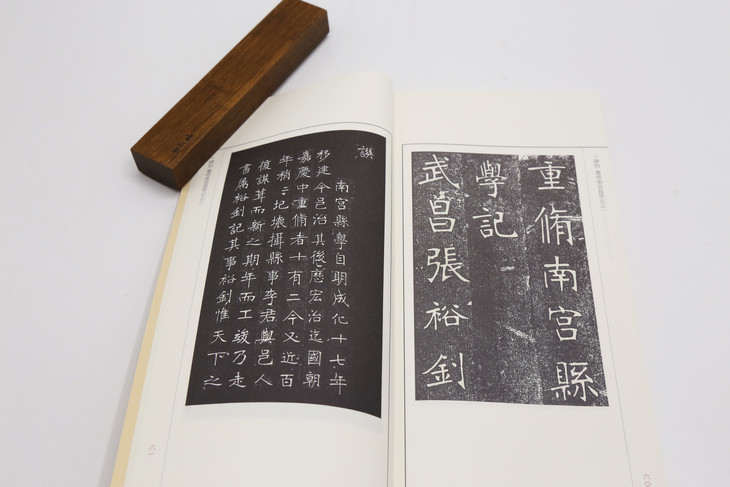 重脩南宮縣
學記
武昌張裕釗
六〇
譔
南宮縣學自明成化十七年
移建今邑治其後歷宏治迄國朝
嘉慶中重脩者十有二今又近百
年稍〻圮壞攝縣事李君與邑人
復謀葺而新之期年而工竣乃走
書属裕釗記其事裕釗惟天下之
六一